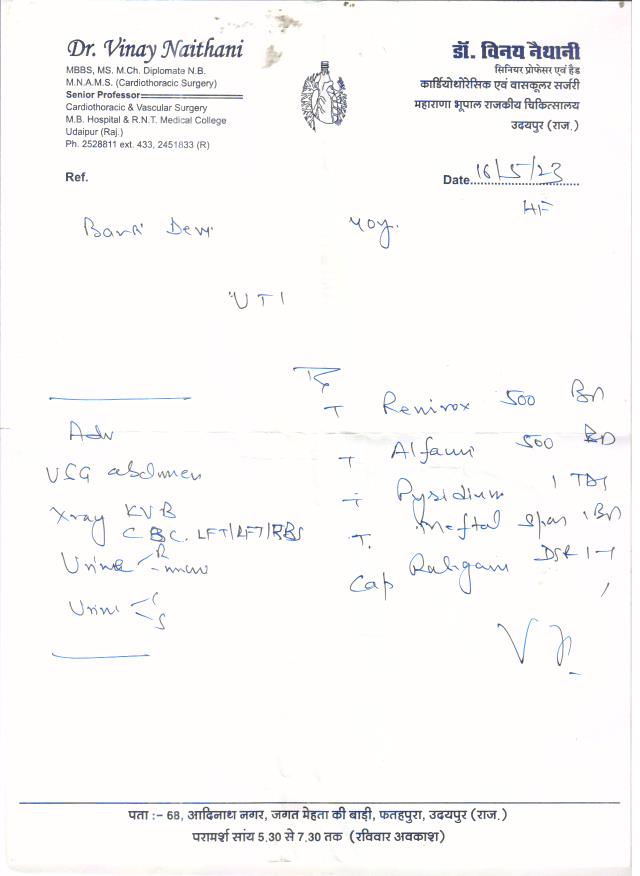 Dr. Vinay Naithani
MBBS, MS. M.Ch. Diplomate N.B.
M.N.A.M.S. (Cardiothoracic Surgery)
Senior Professor
Cardiothoracic & Vascular Surgery
M.B. Hospital & R.N.T. Medical College
Udaipur (Raj.)
Ph. 2528811 ext. 433, 2451833 (R)
डॉ. विनय नैथानी
सिनियर प्रोफेसर एवं हैड
कार्डियोथोरेसिक एवं वासकूलर सर्जरी
महाराणा भूपाल राजकीय चिकित्सालय
उदयपुर (राज.)
Ref.
Date 16/5/23
Devi 40y.
UTI
T Renirox 500 BD
Adv
T 500 BD
USG abdomen
T Pysidium 1 TDS
Xray KUB
T. Meftal Spas 1 BD
CBC. LFT/RFT/RBS
Urine R
Cap DSR 1-1
Urine C
S
पता :– 68, आदिनाथ नगर, जगत मेहता की बाड़ी, फतहपुरा, उदयपुर (राज.)
परामर्श सांय 5.30 से 7.30 तक (रविवार अवकाश)